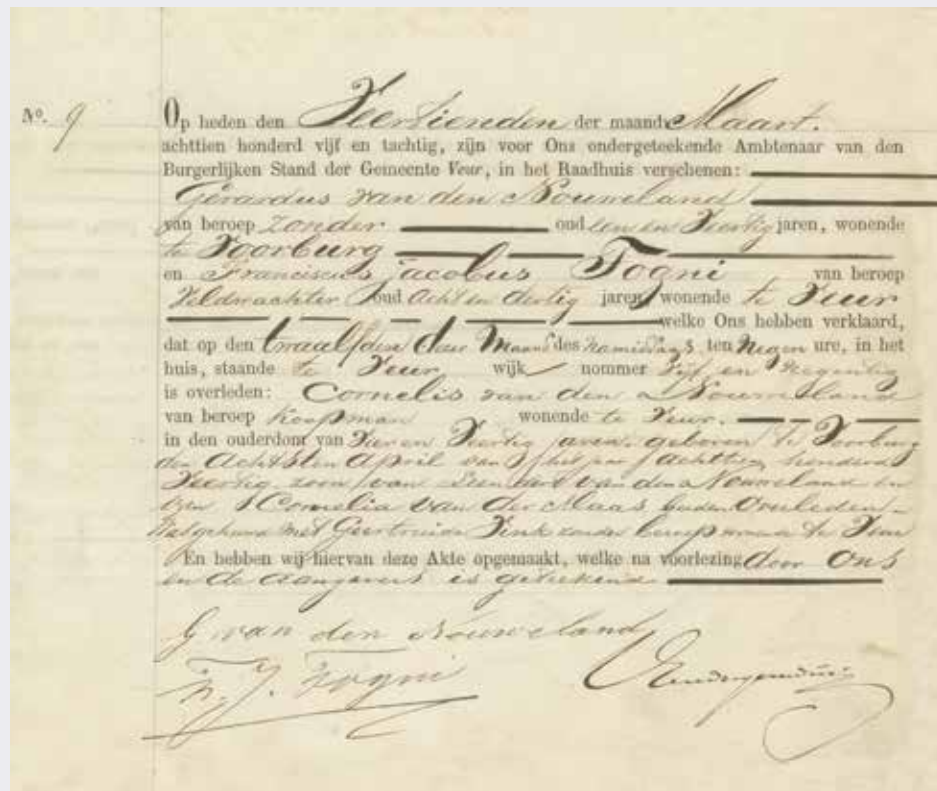 No. 9
Op heden den Veertienden der maand Maart.
achttien honderd vijf en tachtig, zijn voor Ons ondergeteekende Ambtenaar van den
Burgerlijken Stand der Gemeente Veur, in het Raadhuis verschenen:
Gerardus van den Nouweland
van beroep zonder oud een en Veertig jaren, wonende
te Voorburg
en Franciscus Jacobus Togni van beroep
Veldwachter oud Acht en dertig jaren wonende te Veur
welke Ons hebben verklaard,
dat op den twaalfden deser Maand des namiddags ten Negen ure, in het
huis, staande te Veur wijk nommer Vijf en Negentig
is overleden: Cornelis van den Nouweland
van beroep Koopman wonende te Veur.
in den ouderdom van Vier en Veertig jaren, geboren te Voorburg
den Achtsten April van het jaar achttien honderd
Veertig zoon van van den Nouweland en
van Cornelia van der Maas beiden overleden
gehuwd met Geertruida Vink zonder beroep wonende te Veur
En hebben wij hiervan deze Akte opgemaakt, welke na voorlezing door Ons
en de aangevers is geteekend
G van den Nouweland
F. J. Togni